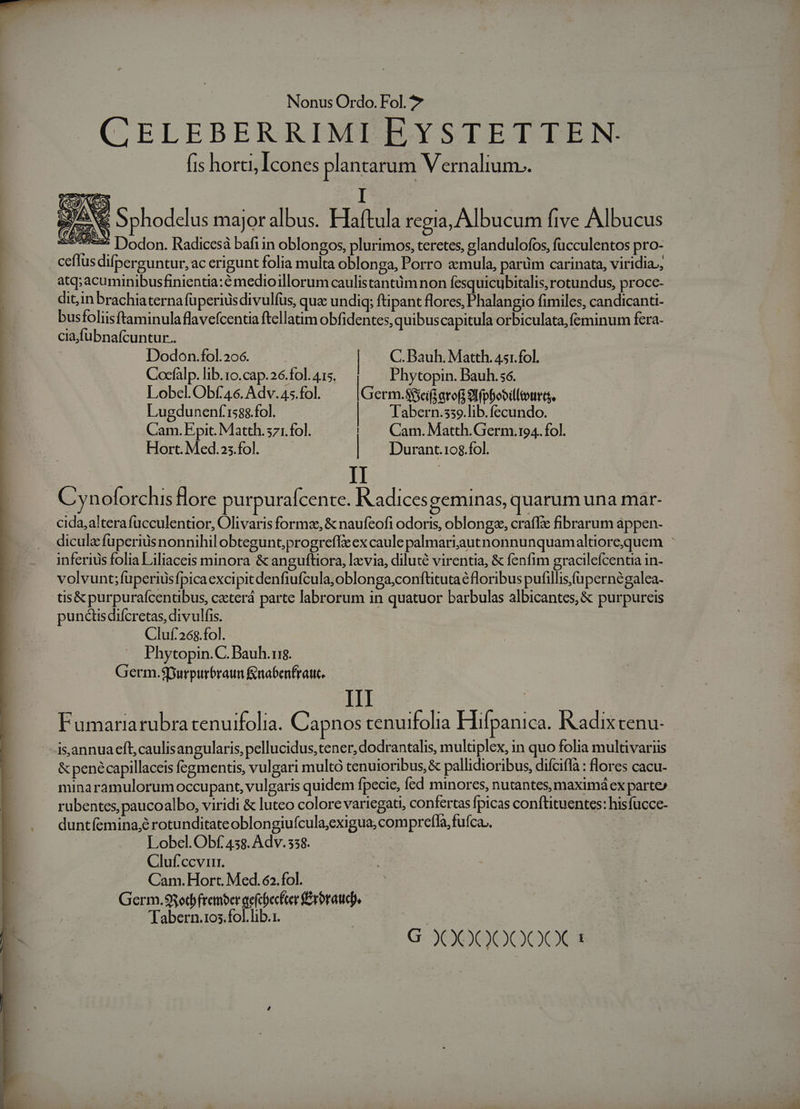 Nonus Ordo. Fol. 7
CELEBERRIMI EYSTETTEN-
ſis horti, Icones plantarum Vernalium.
I
ASphodelus major albus. Haſtula regia, Albucum ſive Albucus
Dodon. Radices à baſi in oblongos, plurimos, teretes, glanduloſos, ſucculentos pro-
ceſſus diſperguntur, ac erigunt folia multa oblonga, Porro æmula, parùm carinata, viridia,
atq; acuminibus finientia: è medio illorum caulis tantùm non ſesquicubitalis, rotundus, proce-
dit, in brachia terna ſuperiùs divulſus, quæ undiq; ſtipant flores, Phalangio ſimiles, candicanti-
bus foliis ſtaminula flaveſcentia ſtellatim obſidentes, quibus capitula orbiculata, ſeminum fera-
cia, ſubnaſcuntur.
Dodon. fol. 206.
Cœſalp. lib. 10. cap. 26. fol. 415.
Lobel. Obſ. 46. Adv. 45. fol.
Lugdunenſ. 1588. fol.
Cam. Epit. Matth. 371. fol.
Hort. Med. 25. fol.
C. Bauh. Matth. 451. fol.
Phytopin. Bauh. 56.
Germ. Weiß groß Aſphodillwurtz.
Tabern. 359. lib. ſecundo.
Cam. Matth. Germ. 194. fol.
Durant. 108. fol.
II
Cynoſorchis flore purpuraſcente. Radices geminas, quarum una mar-
cida, altera ſucculentior, Olivaris formæ, & nauſeoſi odoris, oblongæ, craſſæ fibrarum appen-
diculæ ſuperiùs nonnihil obtegunt, progreſſæ ex caule palmari, aut nonnunquam altiore, quem
inferiùs folia Liliaceis minora & anguſtiora, lævia, dilutè virentia, & ſenſim gracileſcentia in-
volvunt; ſuperiùs ſpica excipit denſiuſcula, oblonga, conſtituta è floribus puſillis, ſupernè galea-
tis & purpuraſcentibus, cæterá parte labrorum in quatuor barbulas albicantes, & purpureis
punctis diſcretas, divulſis.
Cluſ. 268. fol.
Phytopin. C. Bauh. 118.
Germ. Purpurbraun Knabenkraut.
III
Fumaria rubra tenuifolia. Capnos tenuifolia Hiſpanica. Radix tenu-
is, annua eſt, caulis angularis, pellucidus, tener, dodrantalis, multiplex, in quo folia multivariis
& penè capillaceis ſegmentis, vulgari multò tenuioribus, & pallidioribus, diſciſſa: flores cacu-
mina ramulorum occupant, vulgaris quidem ſpecie, ſed minores, nutantes, maximá ex parte
rubentes, pauco albo, viridi & luteo colore variegati, confertas ſpicas conſtituentes: his ſucce-
dunt ſemina, è rotunditate oblongiuſcula, exigua, compreſſa, fuſca.
Lobel. Obſ. 438. Adv. 338.
Cluſ. ccviii.
Cam. Hort. Med. 62. fol.
Germ. Roth frembder geſcheckter Erdrauch.
Tabern. 103. fol. lib. 1.
G )( )( )( )( )( )( )( )( 1